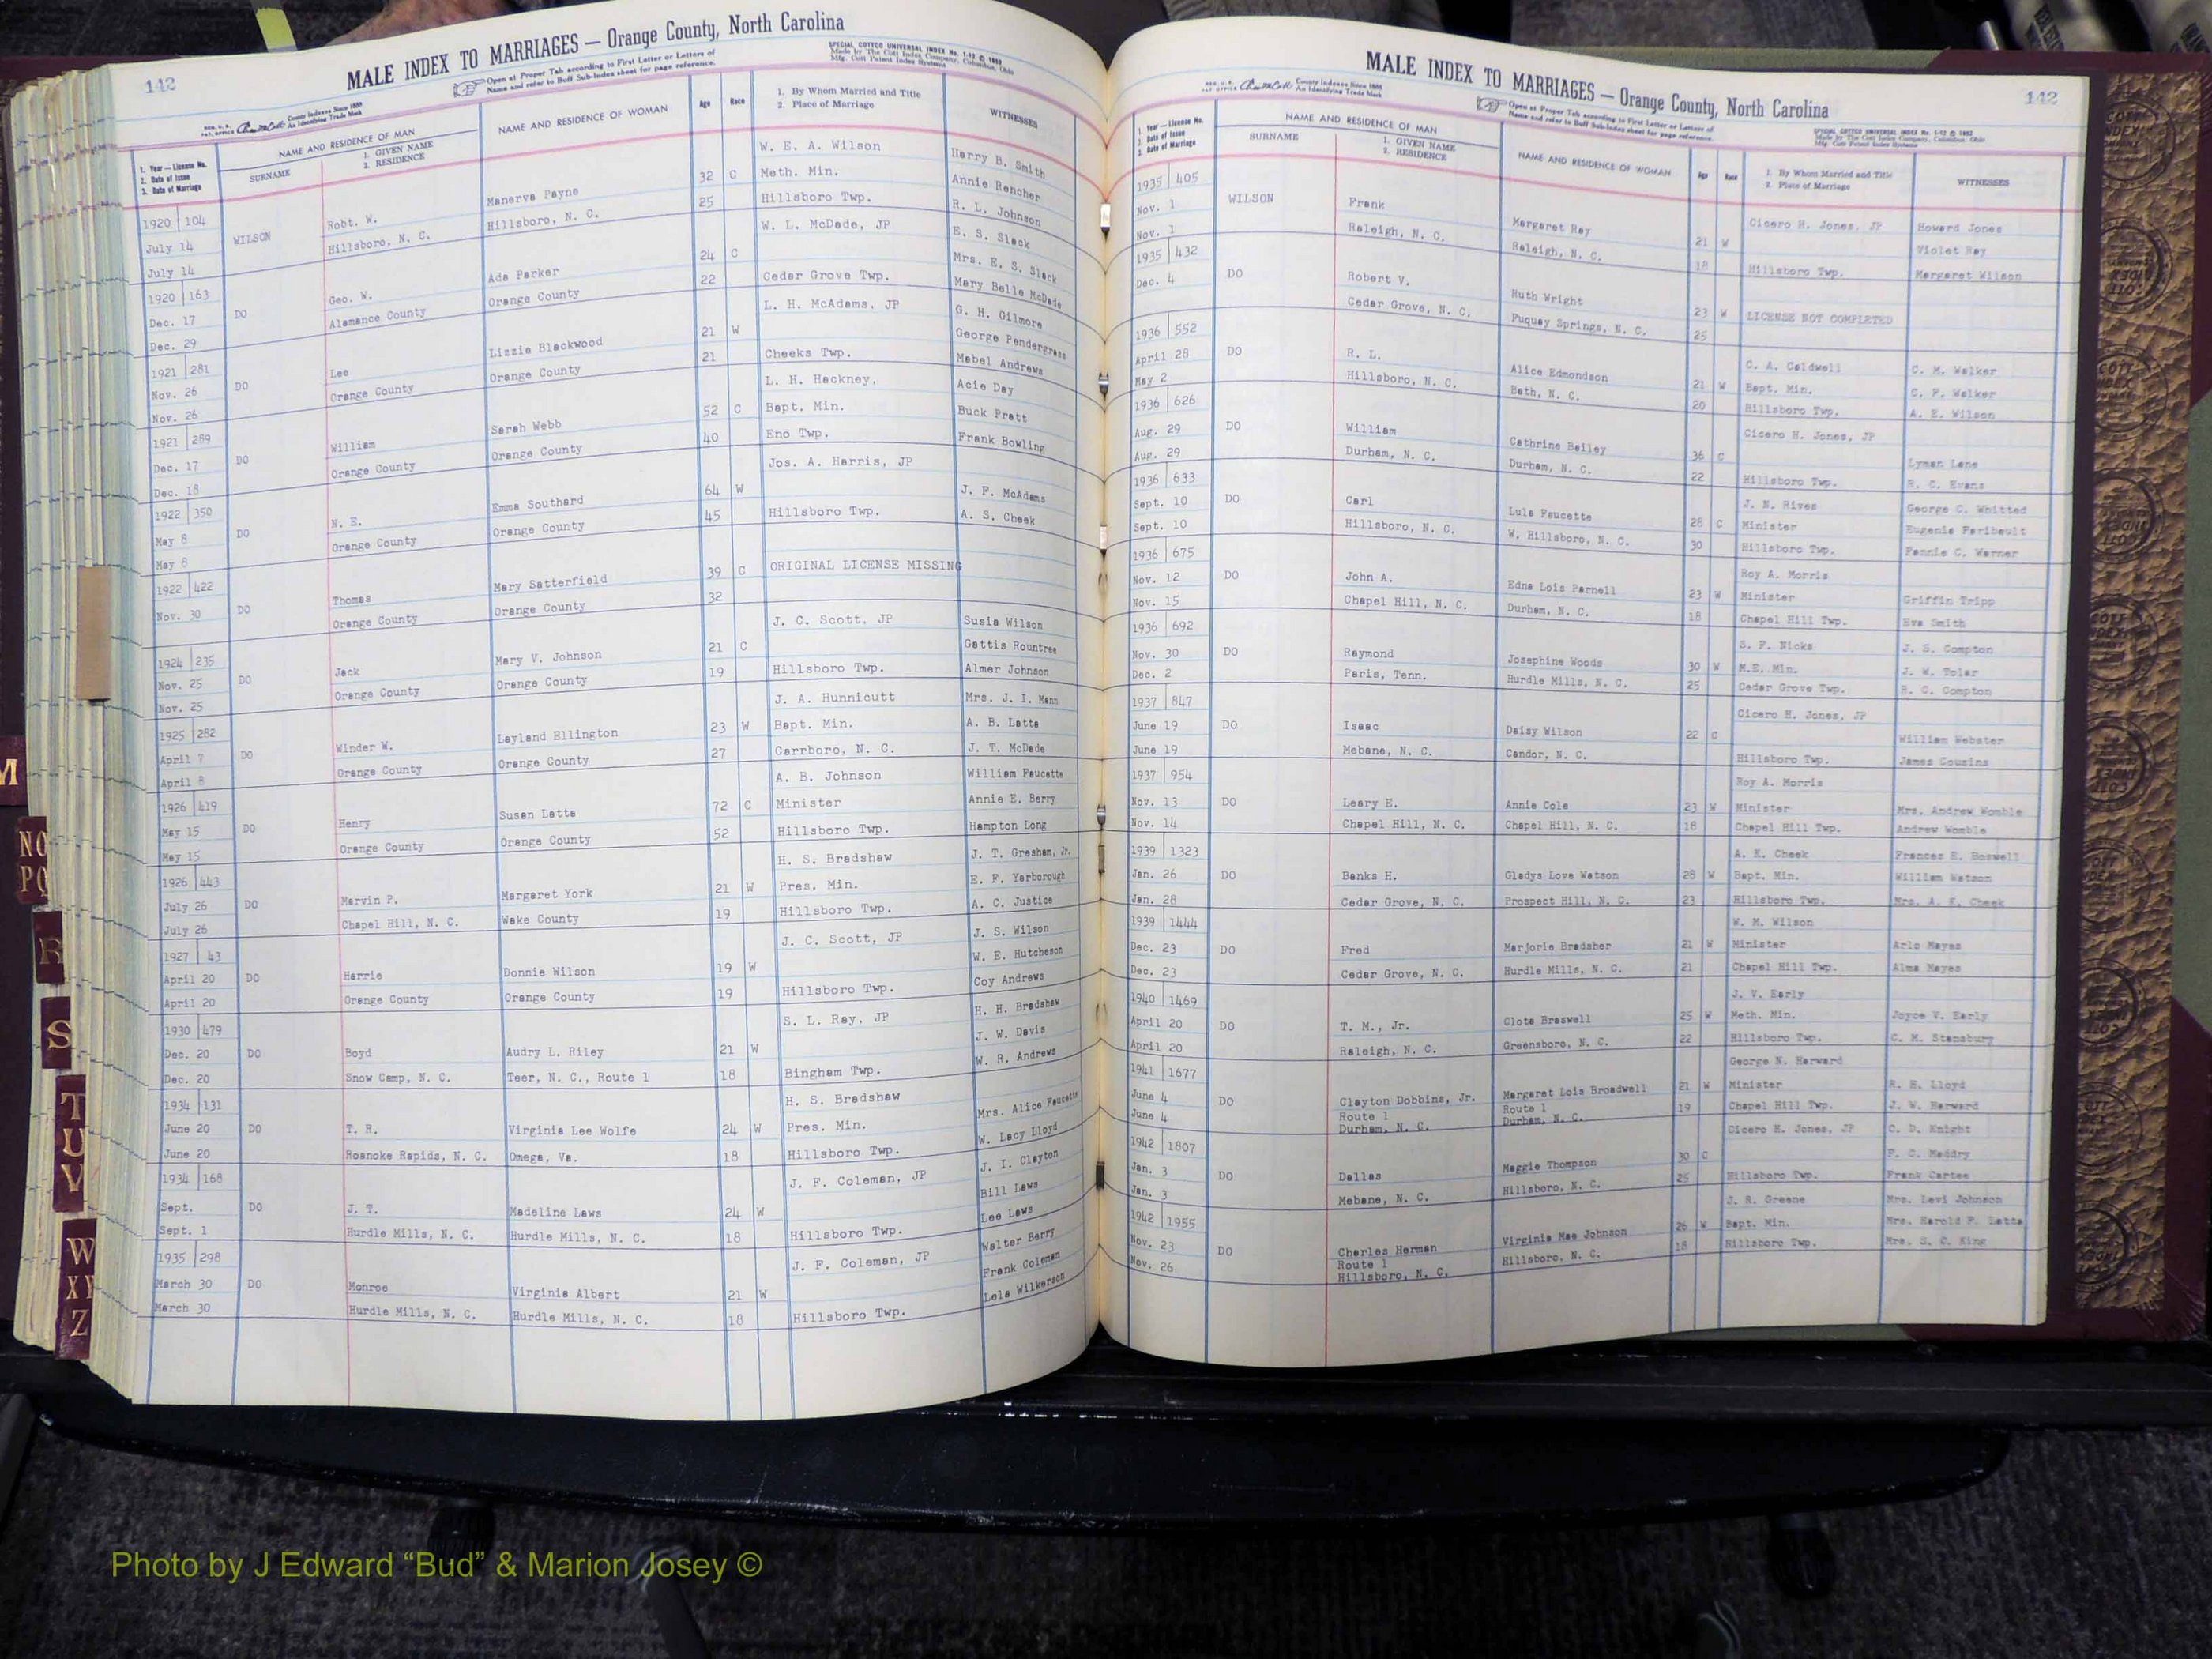 142
MALE INDEX TO MARRIAGES — Orange County, North Carolina
Open at Proper Tab according to First Letter or Letters of
Name and refer to Buff Sub-Index sheet for page reference.
SPECIAL COTTCO UNIVERSAL INDEX No. 1-12 © 1952
Made by The Cott Index Company, Columbus, Ohio
Mfg. Cott Patent Index Systems
County Indexes Since 1888
An Identifying Trade Mark
1. Year — License No.
2. Date of Issue
3. Date of Marriage
NAME AND RESIDENCE OF MAN
SURNAME
1. GIVEN NAME
2. RESIDENCE
NAME AND RESIDENCE OF WOMAN
Age Race
1. By Whom Married and Title
2. Place of Marriage
WITNESSES
1920 104 W. E. A. Wilson Harry B. Smith
July 14 WILSON Robt. W. Manerva Payne 32 C Meth. Min. Annie Rencher
July 14 Hillsboro, N. C. Hillsboro, N. C. 25 Hillsboro Twp. R. L. Johnson
1920 163 W. L. McDade, JP E. S. Slack
Dec. 17 DO Geo. W. Ada Parker 24 C Mrs. E. S. Slack
Dec. 29 Alamance County Orange County 22 Cedar Grove Twp. Mary Belle McDade
1921 281 L. H. McAdams, JP G. H. Gilmore
Nov. 26 DO Lee Lizzie Blackwood 21 W George Pendergrass
Nov. 26 Orange County Orange County 21 Cheeks Twp. Mabel Andrews
1921 289 L. H. Hackney, Acie Day
Dec. 17 DO William Sarah Webb 52 C Bapt. Min. Buck Pratt
Dec. 18 Orange County Orange County 40 Eno Twp. Frank Bowling
1922 350 Jos. A. Harris, JP
May 8 DO N. E. Emma Southard 64 W J. F. McAdams
May 8 Orange County Orange County 45 Hillsboro Twp. A. S. Cheek
1922 422
Nov. 30 DO Thomas Mary Satterfield 39 C ORIGINAL LICENSE MISSING
Orange County Orange County 32
1924 235 J. C. Scott, JP Susie Wilson
Nov. 25 DO Jack Mary V. Johnson 21 C Gattis Rountree
Nov. 25 Orange County Orange County 19 Hillsboro Twp. Almer Johnson
1925 282 J. A. Hunnicutt Mrs. J. I. Mann
April 7 DO Winder W. Layland Ellington 23 W Bapt. Min. A. B. Latta
April 8 Orange County Orange County 27 Carrboro, N. C. J. T. McDade
1926 419 A. B. Johnson William Faucette
May 15 DO Henry Susan Latta 72 C Minister Annie E. Berry
May 15 Orange County Orange County 52 Hillsboro Twp. Hampton Long
1926 443 H. S. Bradshaw J. T. Gresham, Jr.
July 26 DO Marvin P. Margaret York 21 W Pres. Min. E. F. Yarborough
July 26 Chapel Hill, N. C. Wake County 19 Hillsboro Twp. A. C. Justice
1927 43 J. C. Scott, JP J. S. Wilson
April 20 DO Harrie Donnie Wilson 19 W W. E. Hutcheson
April 20 Orange County Orange County 19 Hillsboro Twp. Coy Andrews
1930 479 S. L. Ray, JP H. H. Bradshaw
Dec. 20 DO Boyd Audry L. Riley 21 W J. W. Davis
Dec. 20 Snow Camp, N. C. Teer, N. C., Route 1 18 Bingham Twp. W. R. Andrews
1934 131 H. S. Bradshaw Mrs. Alice Faucette
June 20 DO T. R. Virginia Lee Wolfe 24 W Pres. Min. W. Lacy Lloyd
June 20 Roanoke Rapids, N. C. Omega, Va. 18 Hillsboro Twp. J. I. Clayton
1934 168 J. F. Coleman, JP Bill Laws
Sept. DO J. T. Madeline Laws 24 W Lee Laws
Sept. 1 Hurdle Mills, N. C. Hurdle Mills, N. C. 18 Hillsboro Twp. Walter Berry
1935 298 J. F. Coleman, JP Frank Coleman
March 30 DO Monroe Virginia Albert 21 W Lela Wilkerson
March 30 Hurdle Mills, N. C. Hurdle Mills, N. C. 18 Hillsboro Twp.
MALE INDEX TO MARRIAGES — Orange County, North Carolina
142
County Indexes Since 1888
An Identifying Trade Mark
Open at Proper Tab according to First Letter or Letters of
Name and refer to Buff Sub-Index sheet for page reference.
SPECIAL COTTCO UNIVERSAL INDEX No. 1-12 © 1952
Made by The Cott Index Company, Columbus, Ohio
Mfg. Cott Patent Index Systems
1. Year — License No.
2. Date of Issue
3. Date of Marriage
NAME AND RESIDENCE OF MAN
SURNAME
1. GIVEN NAME
2. RESIDENCE
NAME AND RESIDENCE OF WOMAN
Age Race
1. By Whom Married and Title
2. Place of Marriage
WITNESSES
1935 405 Cicero H. Jones, JP Howard Jones
Nov. 1 WILSON Frank Margaret Ray 21 W Violet Ray
Nov. 1 Raleigh, N. C. Raleigh, N. C. 18 Hillsboro Twp. Margaret Wilson
1935 432
Dec. 4 DO Robert V. Ruth Wright 23 W LICENSE NOT COMPLETED
Cedar Grove, N. C. Fuquay Springs, N. C. 25
1936 552 C. A. Caldwell C. M. Walker
April 28 DO R. L. Alice Edmondson 21 W Bapt. Min. C. F. Walker
May 2 Hillsboro, N. C. Bath, N. C. 20 Hillsboro Twp. A. E. Wilson
1936 626 Cicero H. Jones, JP
Aug. 29 DO William Cathrine Bailey 36 C Lyman Lane
Aug. 29 Durham, N. C. Durham, N. C. 22 Hillsboro Twp. R. C. Evans
1936 633 J. N. Rives George C. Whitted
Sept. 10 DO Carl Lula Faucette 28 C Minister Eugenia Faribault
Sept. 10 Hillsboro, N. C. W. Hillsboro, N. C. 30 Hillsboro Twp. Fannie C. Warner
1936 675 Roy A. Morris
Nov. 12 DO John A. Edna Lois Parnell 23 W Minister Griffin Tripp
Nov. 15 Chapel Hill, N. C. Durham, N. C. 18 Chapel Hill Twp. Eva Smith
1936 692 S. F. Nicks J. S. Compton
Nov. 30 DO Raymond Josephine Woods 30 W M.E. Min. J. W. Tolar
Dec. 2 Paris, Tenn. Hurdle Mills, N. C. 25 Cedar Grove Twp. R. C. Compton
1937 847 Cicero H. Jones, JP
June 19 DO Isaac Daisy Wilson 22 C William Webster
June 19 Mebane, N. C. Candor, N. C. Hillsboro Twp. James Cousins
1937 954 Roy A. Morris
Nov. 13 DO Leary E. Annie Cole 23 W Minister Mrs. Andrew Womble
Nov. 14 Chapel Hill, N. C. Chapel Hill, N. C. 18 Chapel Hill Twp. Andrew Womble
1939 1323 A. K. Cheek Frances E. Boswell
Jan. 26 DO Banks H. Gladys Love Watson 28 W Bapt. Min. William Watson
Jan. 28 Cedar Grove, N. C. Prospect Hill, N. C. 23 Hillsboro Twp. Mrs. A. K. Cheek
1939 1444 W. M. Wilson
Dec. 23 DO Fred Marjorie Bradsher 21 W Minister Arlo Mayes
Dec. 23 Cedar Grove, N. C. Hurdle Mills, N. C. 21 Chapel Hill Twp. Alma Mayes
1940 1469 J. V. Early
April 20 DO T. M., Jr. Clote Braswell 25 W Meth. Min. Joyce V. Early
April 20 Raleigh, N. C. Greensboro, N. C. 22 Hillsboro Twp. C. M. Stansbury
1941 1677 George N. Harward
June 4 DO Clayton Dobbins, Jr. Margaret Lois Broadwell 21 W Minister R. H. Lloyd
June 4 Route 1 Route 1 19 Chapel Hill Twp. J. W. Harward
Durham, N. C. Durham, N. C.
1942 1807 Cicero H. Jones, JP C. D. Knight
Jan. 3 DO Dallas Maggie Thompson 30 C F. C. Maddry
Jan. 3 Mebane, N. C. Hillsboro, N. C. 25 Hillsboro Twp. Frank Cartee
1942 1955 J. R. Greene Mrs. Levi Johnson
Nov. 23 DO Charles Herman Virginia Mae Johnson 26 W Bapt. Min. Mrs. Harold F. Latta
Nov. 26 Route 1 Hillsboro, N. C. 18 Hillsboro Twp. Mrs. S. C. King
Hillsboro, N. C.
M
R
S
T
U
V
W
Z
Photo by J Edward “Bud” & Marion Josey ©